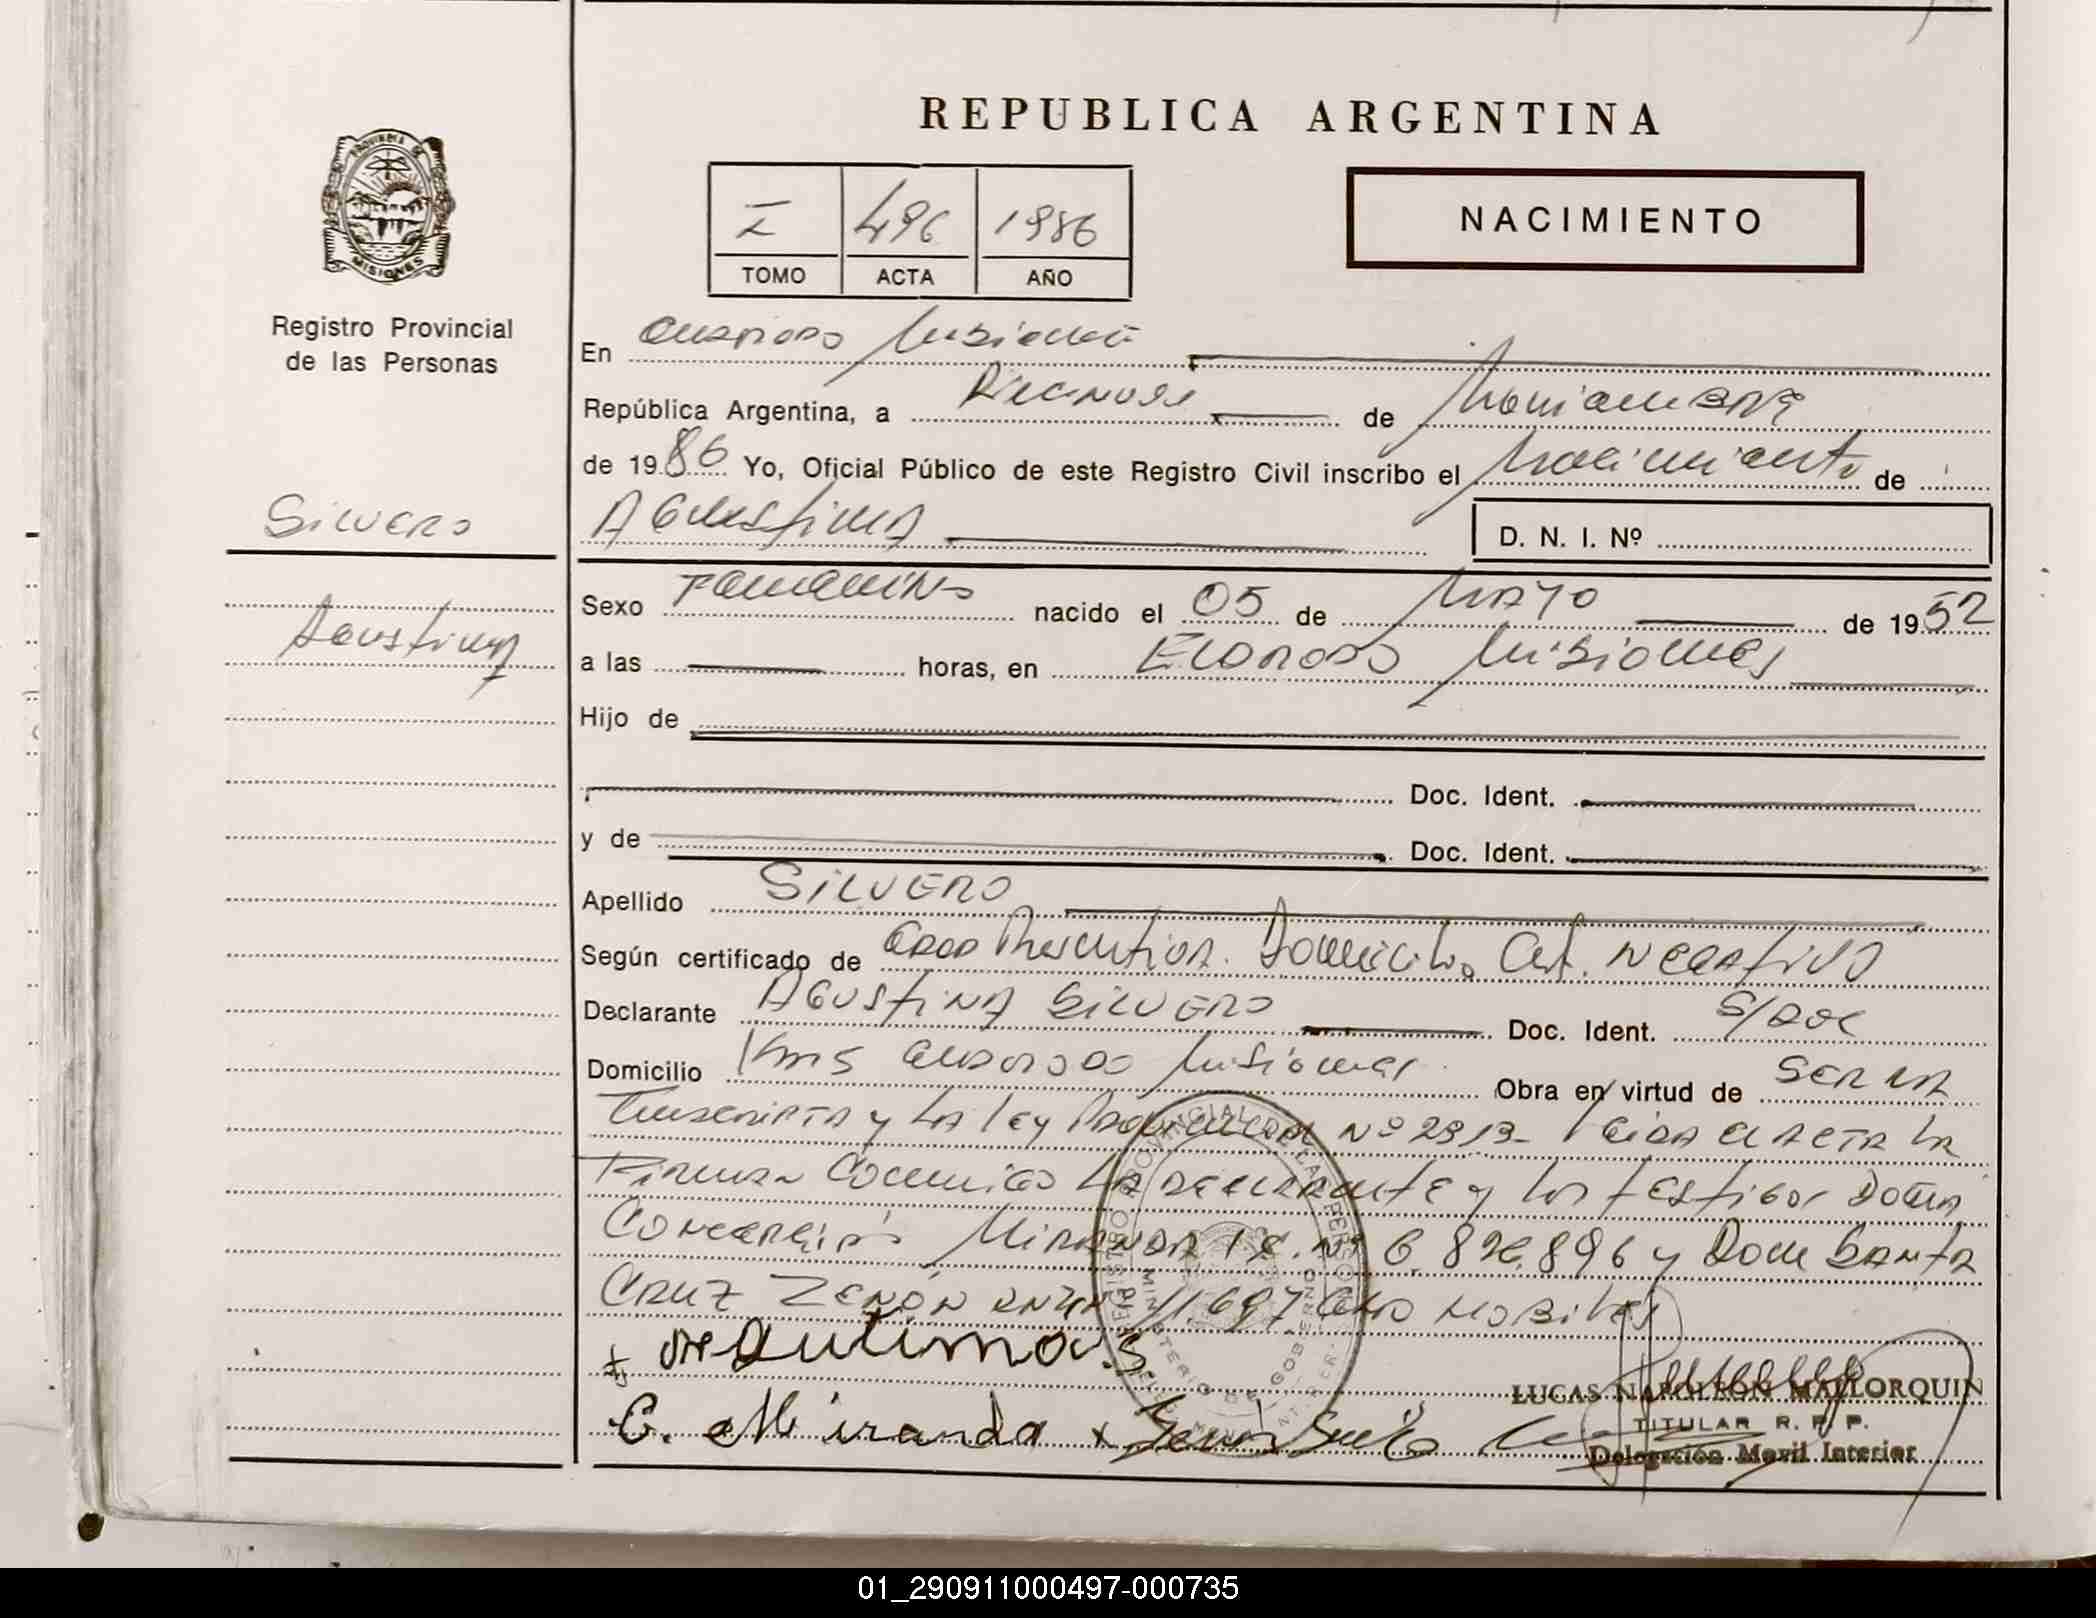 REPUBLICA ARGENTINA
PROVINCIA DE
MISIONES
I 496 1986
TOMO ACTA AÑO
NACIMIENTO
Registro Provincial
de las Personas
En Eldorado Misiones
República Argentina, a Diecinueve de Noviembre
de 1986 Yo, Oficial Público de este Registro Civil inscribo el Nacimiento de
Silvero
Agustina
D. N. I. Nº
Agustina
Sexo Femenino nacido el 05 de Mayo de 1952
a las horas, en Eldorado Misiones
Hijo de
Doc. Ident.
y de Doc. Ident.
Apellido SILVERO
Según certificado de Domicilio, Cert. Negativo
Declarante AGUSTINA SILVERO Doc. Ident. S/Doc
Domicilio Km 5 Eldorado Misiones Obra en virtud de ser la
Inscripta y la Ley Provincial Nº 2313- Leida el acta la
Firman Conmigo la declarante y los testigos Doña
Concepción Miranda I C. Nº 6.826.896 y Don Santa
Cruz Zenón
C. Miranda
LUCAS NAPOLEON MALLORQUIN
TITULAR R. P. P.
Delegación Movil Interior
01_290911000497-000735